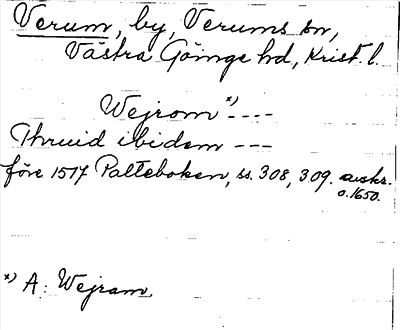 Verum, by, Verums sn,
Västra Göinge hd, Krist. l.
Wejrom x) ----
Thruid ibidem ---
före 1517 Palteboken, ss. 308, 309. avskr.
o. 1650.
x) A: Wejram.